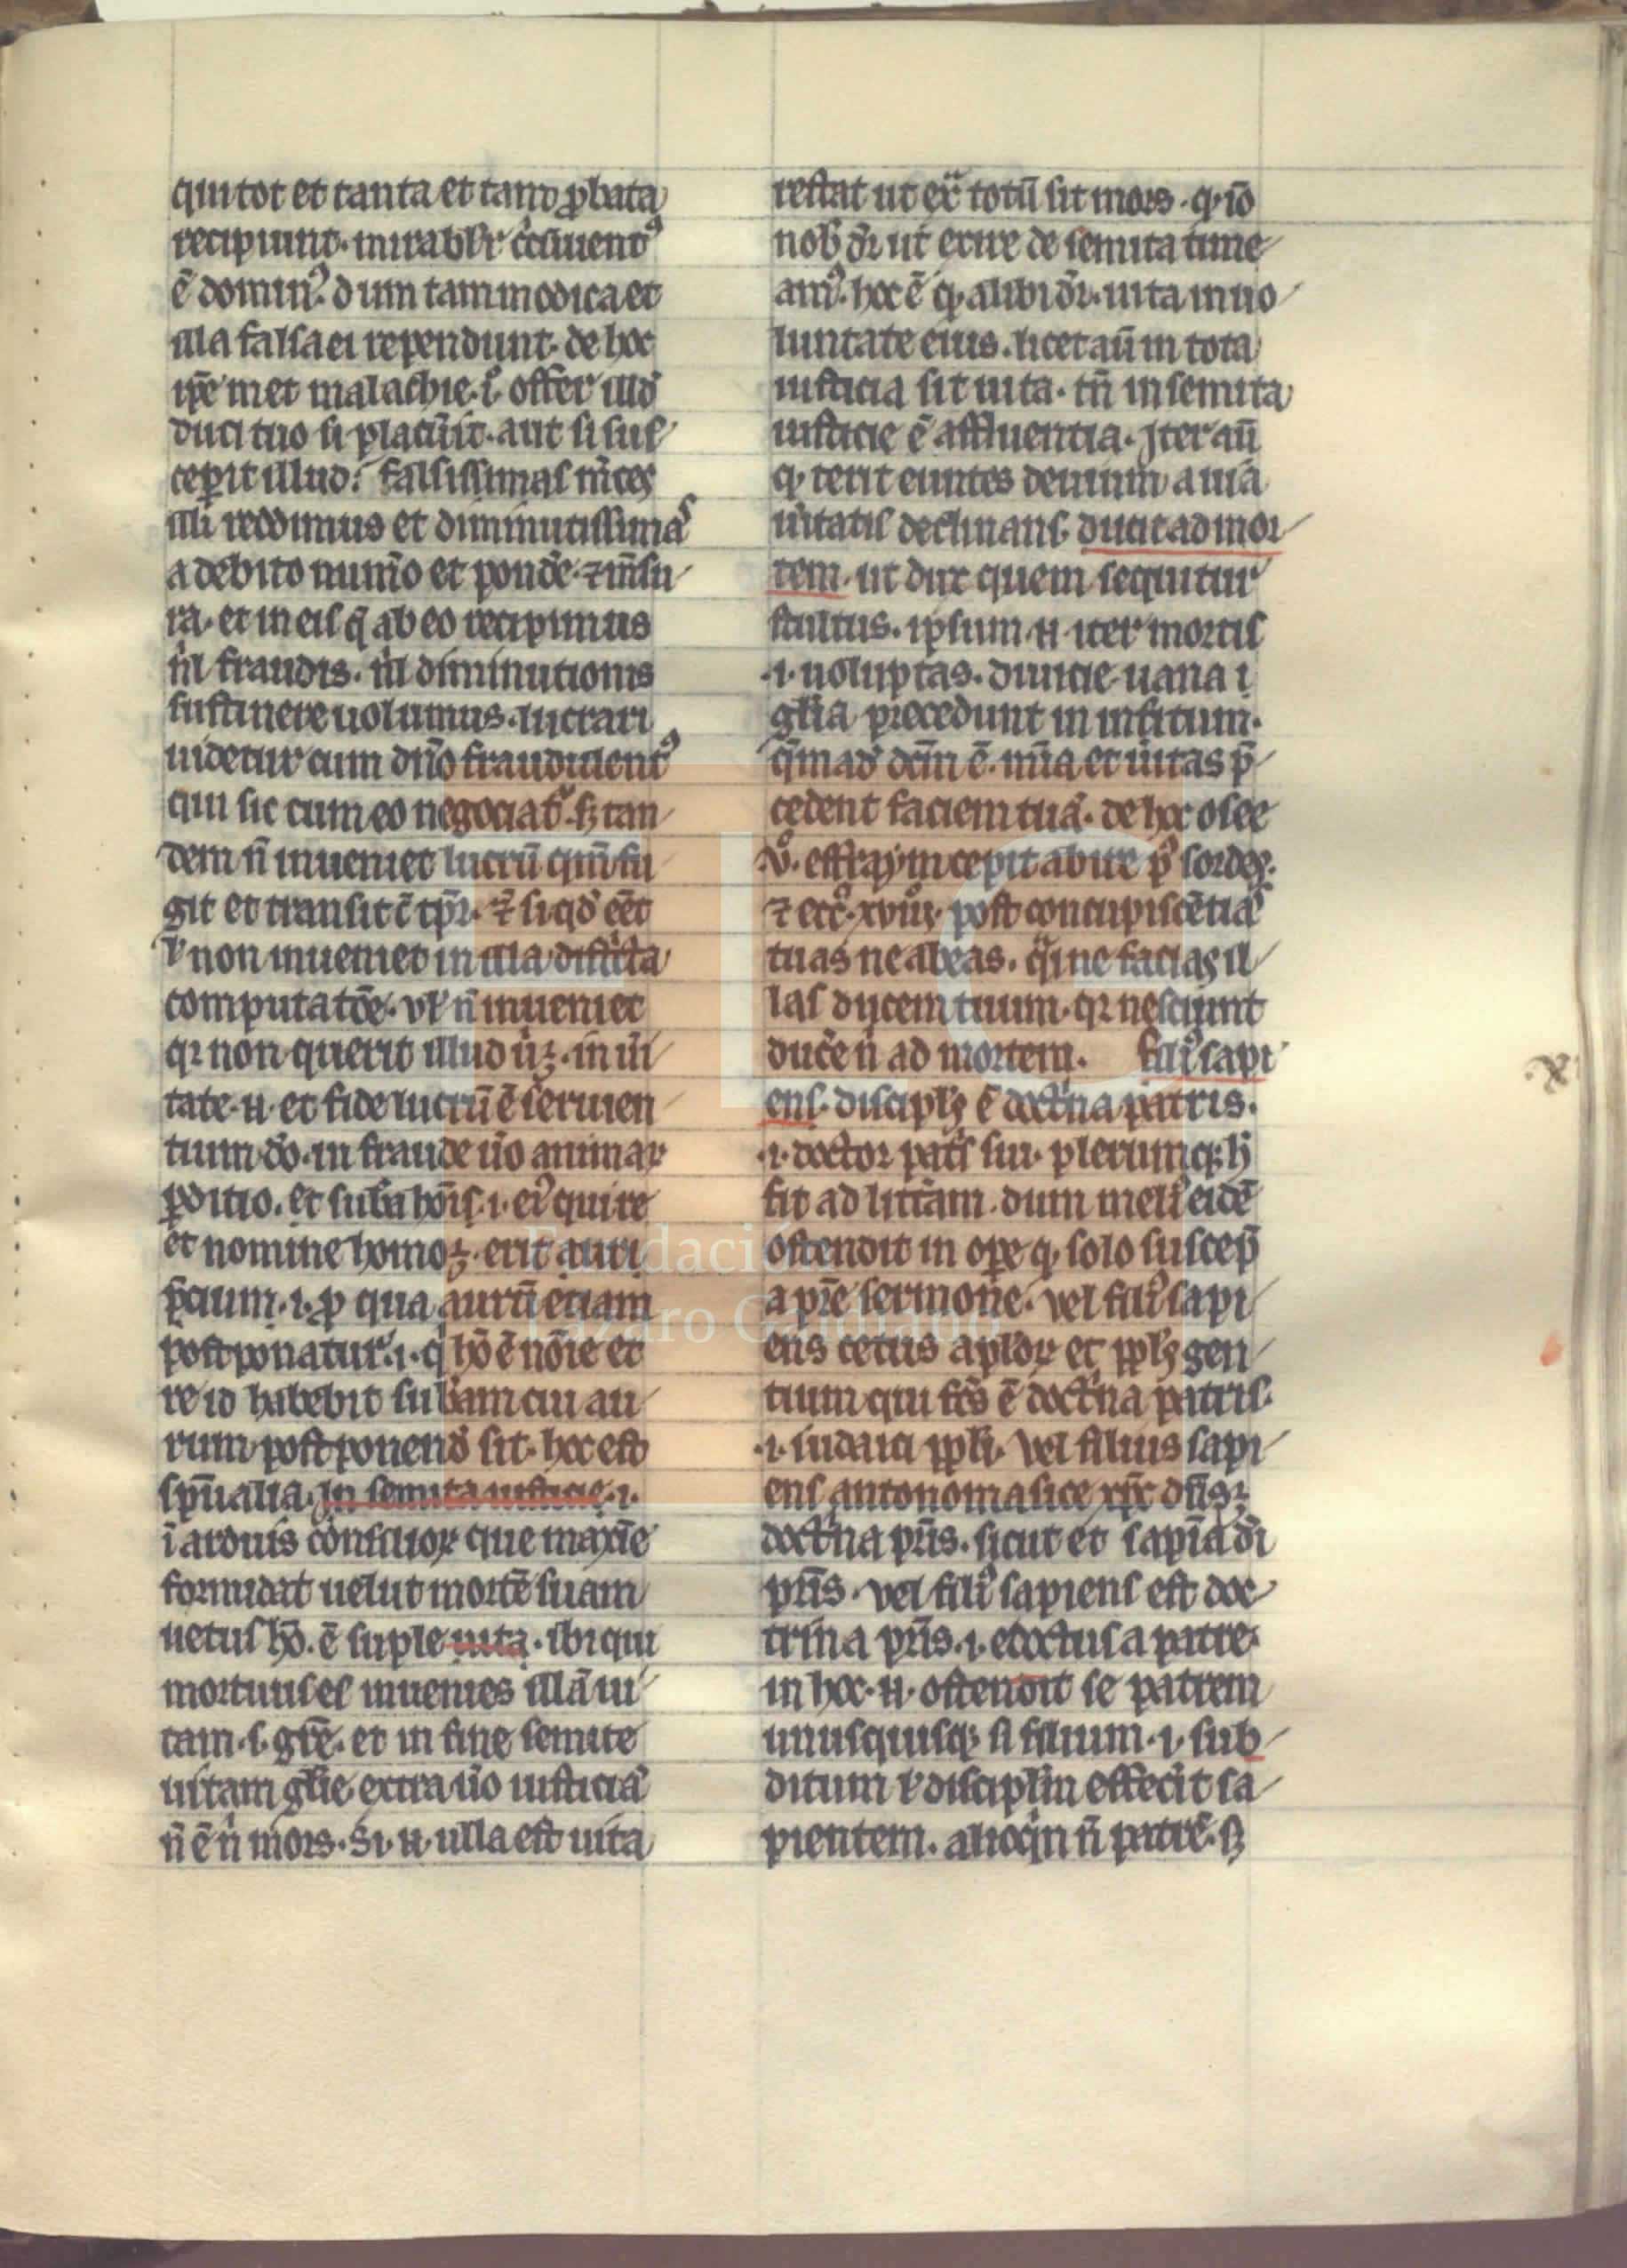 qui tot et tanta et tanto ꝓbata
recipiunt. mirabilr̄ cc̄uient⁹
ē domin⁹. dum tam modica et
illa falsa ei rependunt. de hoc
ip̄e met malachie. i. offer illd̄
duci tuo si placu̅it. aut si sus
ceꝑit illud. falsissimas m̄ces
illi reddimus et diminutissimas
a debito num̄o et pond̄e. ⁊ m̄su
ra. et in eis q̄ ab eo recipimus
nil fraudis. nil diminutionis
sustinere uolumus. lucrari
uidetur cum dn̄o fraudulent⁹
qui sic cum eo negociat᷑. sꝫ tan
dem n̄ inueniet lucrū qm̄ fu
git et transit c̄ tp̄r. ⁊ si qd̄ eēt
ł non inueniet in illa districta
computatōe. vł n̄ inueniet
qꝛ non querit illud uꝫ. in ui
tate. n. et fide lucrū ē seruien
tium dō. in fraude ūo animaꝝ
ꝑditio. et suba hōis. i. ei⁹ qui re
et nomine homo ꝫ. erit auri
p̄cium. i. ꝓ qua aurū etiam
postponatur. i. q̄ hō ē nōie et
re id habebit subam cui au
rum postponend̄ sit. hoc est
sp̄ualia. In semita iusticie. i.
ī arduis consilioꝝ que maxīe
formidat uelut mortē suam
uetus hō. ē suple uita. ibi qui
mortuus es inuenies illā ui
tam. s. grē. et in fine semite
uitam glīe. extra ūo iusticiā
n̄ ē n̄ mors. Si. n. ulla est uita
restat ut ex̄ totū sit mors. q. iō
nob̄ dr̄ ut exire de semita time
am⁹. hoc ē q. alibi dr̄. uita in uo
luntate eius. licet aū in tota
iusticia sit uita. tn̄ in semita
iusticie ē affluentia. Iter aū
q. terit euntes deuium a uia
ūitatis declinans ducit ad mor
tem. ut dux quem sequitur
stultus. ipsum. n. iter mortis
.i. uoluptas. diuicie. uana i
glīa precedunt in infitum.
q̄madd̄ dc̄m ē. mīa et ūitas p̄
cedent faciem tuā. de hoc osee
v⁰. effraym cepit abire p⁹ sordes.
⁊ ecc̄. xviii. post concupiscētias
tuas ne abeas. q̈i ne facias il
las ducem tuum. qꝛ nesciunt
ducēe n̄ ad mortem. Fili⁹ sapi
ens. disciplꝫ ē doctͥna patris.
.i. doctor patͥs sui. plerumqꝫ h̄
fit ad litt̄am. dum meli⁹ eidē
ostendit in oꝑe q. solo suscep̄
a pr̄e sermone. Vel fili⁹ sapi
ens cetus apłoꝝ et pplꝫ gen
tium qui fc̄s ē doctͥna patris.
.i. iudaici ppli. Vel filius sapi
ens antonomasice xp̄c dn̄s ꝫ
doctͥna pr̄is. sicut et sapīa di
pr̄is. Vel fili⁹ sapiens est doc
trina pr̄is. i. edoctus a patre.
in hoc. n. ostendit se patrem
unusquisqꝫ si filium. i. sub
ditum ł disciplīm effecit sa
pientem. alioqͥn n̄ patrē. sꝫ
.x.
Fundación
Lázaro Galdiano